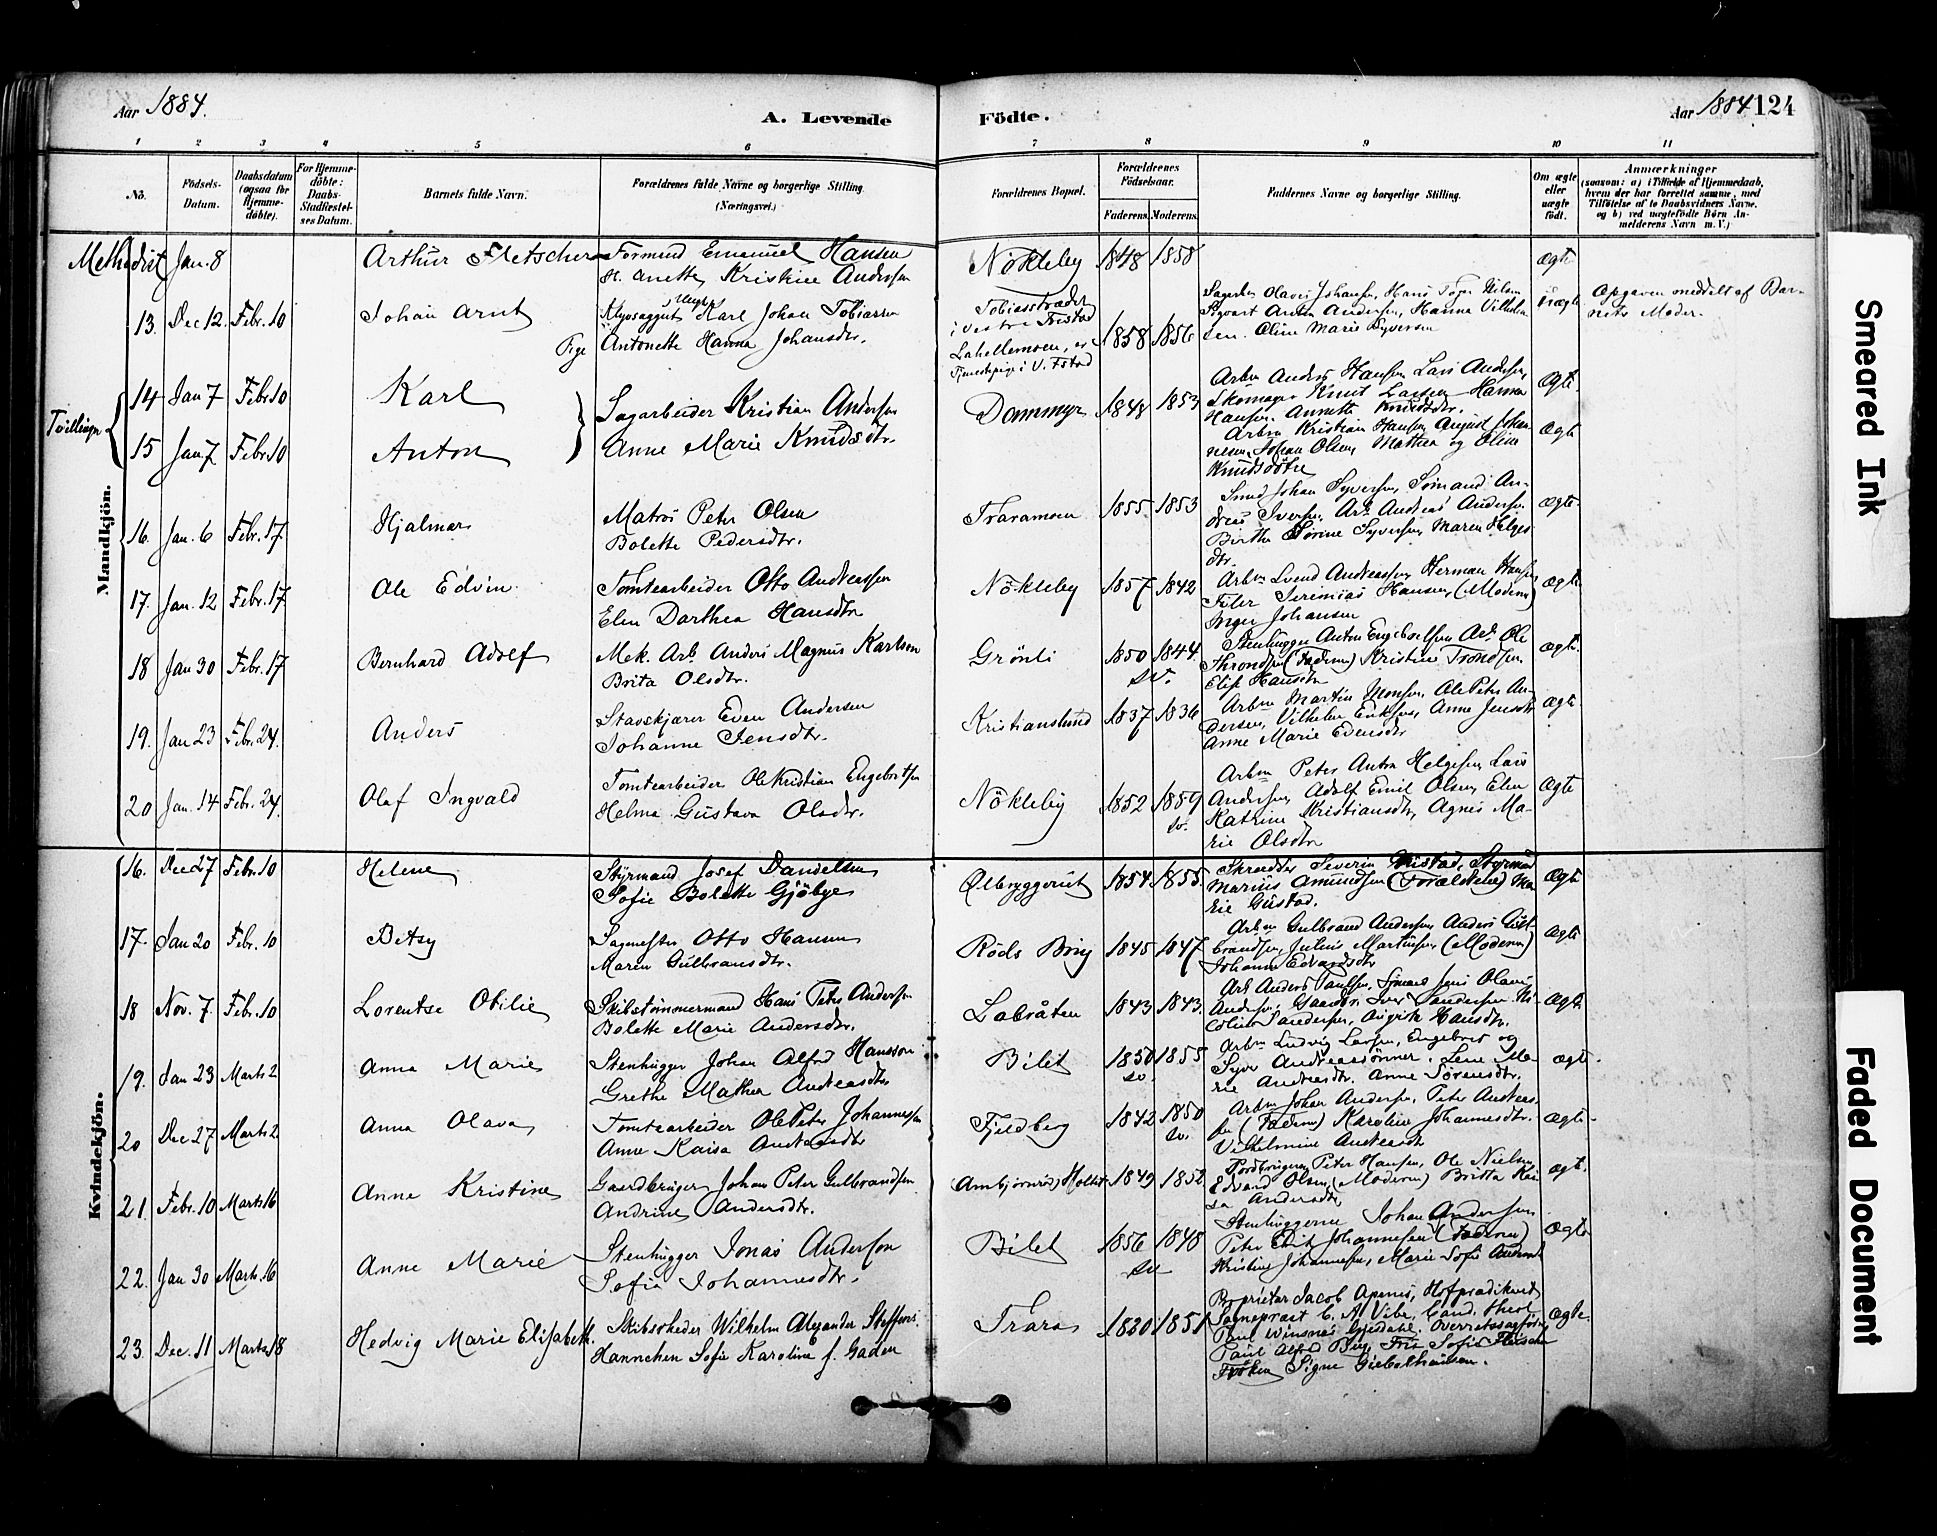 Aar 1884.
A. Levende
Födte.
Aar 1884 124
1 2 3 4 5 6 7 8 9 10 11
No.
Födsels-Datum.
Daabsdatum (ogsaa for Hjemmedöbte).
For Hjemmedöbte: Daabs Stadfæstelses Datum.
Barnets fulde Navn.
Forældrenes fulde Navne og borgerlige Stilling. (Næringsvei.)
Forældrenes Bopæl.
Forældrenes Födselsaar.
Faderens. Moderens.
Faddernes Navne og borgerlige Stilling.
Om ægte eller uægte födt.
Anmærkninger
(saasom: a) i Tilfælde af Hjemmedaab, hvem der har forrettet samme, med Tilföielse af to Daabsvidners Navne, og b) ved uægtefödte Börn Anmelderens Navn m. V.)
Mandkjön.
Methodist Jan. 8 Arthur Fletscher Formund Emanuel Hansen
H. Anette Kristine Andersen
Nökleby 1848 1858 Ægte
13. Dec 12. Febr. 10 Johan Arnt
Ungk. Karl Johan Tobiassen
Pige Antonette Hanna Johansdtr.
Tobiasstrædet
i Vestre Fristad
1858 1856
Uægte
Opgaven meddelt af Barnets Moder.
Tvillinger
14 Jan 7 Febr. 10 Karl
15 Jan 7 Febr. 10 Anton
Sagarbeider Kristian Andersen
Anne Marie Knudsdtr.
Dammyr 1848 1853
Arbm Anders Hansen, Lars Andersen,
Skomager Knut Larsen, Hanna
Hansen, Annette Knudsdtr.
Arbm Kristian Hansen, August Johannesen, Johan Olsen, Mathea og Oline
Knudsdötre
Ægte
Ægte
16. Jan. 6 Febr. 17. Hjalmar Matros Peter Olsen
Bolette Pedersdtr.
Traramoen 1855. 1853
Smed Johan Syversen, Sömand Andreas Iversen, Arb. Andreas Andersen
Birthe Sörine Syversen, Maren Helgesdtr.
Ægte.
17. Jan. 12 Febr. 17. Ole Edvin Tomtearbeider Otto Andreassen
Elen Darthea Hansdtr
Nökleby 1857 1842
Arbm Svend Andreassen, Herman Hansen
Filer Jeremias Hansen, (Moderen)
Inger Johansen
Ægte
18 Jan 30 Febr. 17 Bernhard Adolf Mek. Arb. Anders Magnus Karlsson
Brita Olsdtr.
Grönli 1850 1844
sv.
Stenhugger Anton Engebretsen Arb. Ole
Throndsen (Faderen) Kristine Trondsen
Elise Hansdtr
Ægte.
19. Jan 23 Febr. 24. Anders Stavskjærer Even Andersen
Johanne Jensdtr.
Kristianslund 1837 1836
Arbm Martin Monsen, Ole Peter Andersen, Vilhelm Eriksen, Anne Jensdtr
Anne Marie Evensdtr
Ægte
20 Jan. 14 Febr. 24. Olaf Ingvald Tomtearbeider Ole Kristian Engebretsen
Helma Gustava Olsdtr.
Nökleby 1852 1859
sv.
Arbm Peter Anton Helgesen, Lars
Andersen, Adolf Emil Olsen, Elen
Katrine Kristiansdtr, Agnes Marie Olsdtr
Ægte
Kvindekjön.
16. Dec 27 Febr. 10 Helene Styrmand Josef Danielsen
Sofie Bolette Gjöbye
Ölbryggerut 1854. 1855.
Skrædder Severin Gustad, Styrmand
Marius Amundsen (Forældrene) Marie Gustad.
Ægte
17. Jan 20 Febr. 10 Betsy Sagmester Otto Hansen
Maren Gulbransdtr.
Röds Brug 1845 1847
Arbm Gulbrand Andersen, Anders Gulbrandsen, Julius Martinsen, (Moderen)
Johanne Edvardsdtr
Ægte
18 Nov. 7. Febr. 10 Lorentse Otilie Skibstömmermand Hans Peter Andersen
Bolette Marie Andersdtr.
Labråten 1843 1843.
Ægte.
19. Jan 23 Marts 2 Anna Marie Stenhugger Johan Alfred Hansson
Grethe Mathea Andreasdtr
Bilet 1850 1855
sv.
Arbm Ludvig Larsen, Engebret og
Syver Andreassönner. Lene Marie Andreasdtr. Anne Sörensdtr.
Ægte.
20 Dec 27 Marts 2 Anna Olava Tomtearbeider Ole Peter Johannessen
Anne Kaisa Andreasdtr
Fjeldberg 1842 1850
sv.
Arbm Johan Andersen, Peter Andreassen (Faderen) Karoline Johannesdtr.
Vilhelmine Andreasdtr
Ægte.
21. Febr. 10 Marts 16 Anna Kristine Gaardbruger Johan Peter Gulbrandsen
Andrine Andersdtr.
(Ambjörnröd) Holtet 1849 1852
Jordbrugerne Peter Hansen, Ole Nielsen,
Edvard Olsen, (Moderen) Britta Kaisa Andersdtr
Ægte.
22. Jan 30 Marts 16 Anne Marie Stenhugger Jonas Andersson
Sofia Johannesdtr.
Bilet 1856 1848
sv
Stenhuggerne Johan Andersen
Peter Johannesen (Faderen)
Kristine Johannesen, Marie Sofie
Ægte
23. Dec. 11 Marts 18 Hedvig Marie Elisabeth. Skibsreder Wilhelm Alexander Steffens.
Hannchen Sofie Karoline f. Gaden
Trara 1830 1851
Proprietær Jacob Apenes, Hofprædikant
Sogneprest C. A. Vibe, Cand. theol.
Paul Winsnes Gjesdahl, Overretssagförer
Paul Alfred Berg, Fru Sofie
Fröken Signe
Ægte.
Smeared Ink
Faded Document